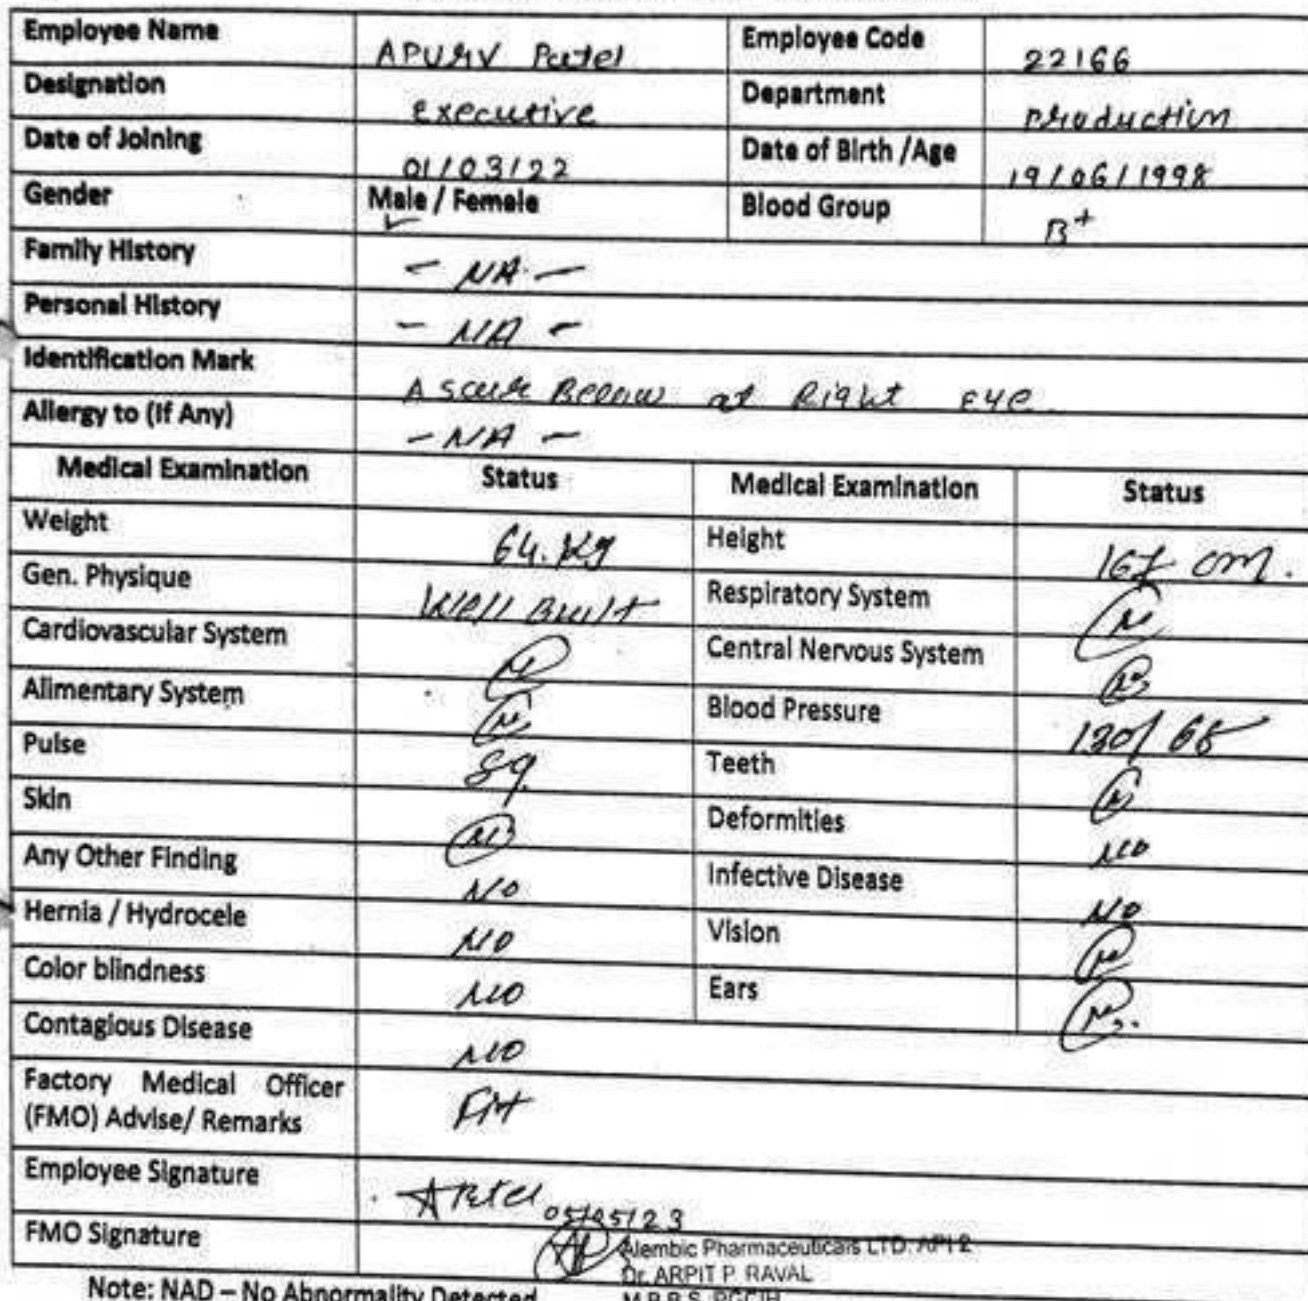 Employee Name APURV Patel Employee Code 22166
Designation Executive Department production
Date of Joining 01/03/22 Date of Birth /Age 19/06/1998
Gender Male / Female Blood Group B+
Family History - NA -
Personal History - NA -
Identification Mark A scar Below at Right Eye.
Allergy to (If Any) - NA -
Medical Examination Status Medical Examination Status
Weight 64. Kg Height 167 cm.
Gen. Physique Well Built Respiratory System N
Cardiovascular System N Central Nervous System N
Alimentary System N Blood Pressure 130/
Pulse 89 Teeth N
Skin N Deformities NO
Any Other Finding NO Infective Disease NO
Hernia / Hydrocele NO Vision N
Color blindness NO Ears N
Contagious Disease NO
Factory Medical Officer
(FMO) Advise/ Remarks Fit
Employee Signature APatel 05/05/23
FMO Signature Alembic Pharmaceuticals LTD. API 2
Dr. ARPIT P. RAVAL
Note: NAD – No Abnormality Detected M.B.B.S.